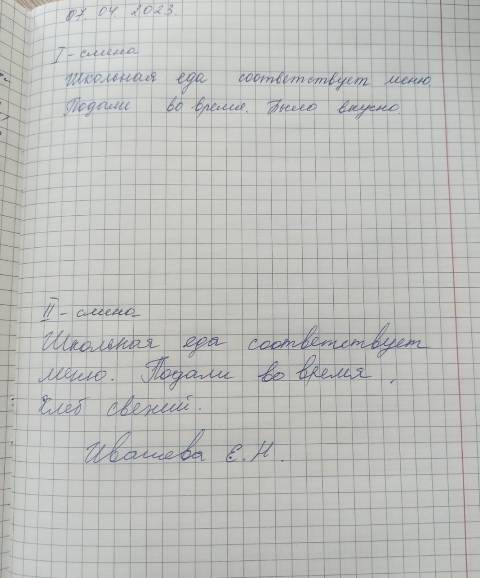 07 04 2023.
I - смена
Школьная еда соответствует меню
Подали во время. Было вкусно
II - смена
Школьная еда соответствует
меню. Подали во время.
Хлеб свежий.
Ивашева Е.Н.